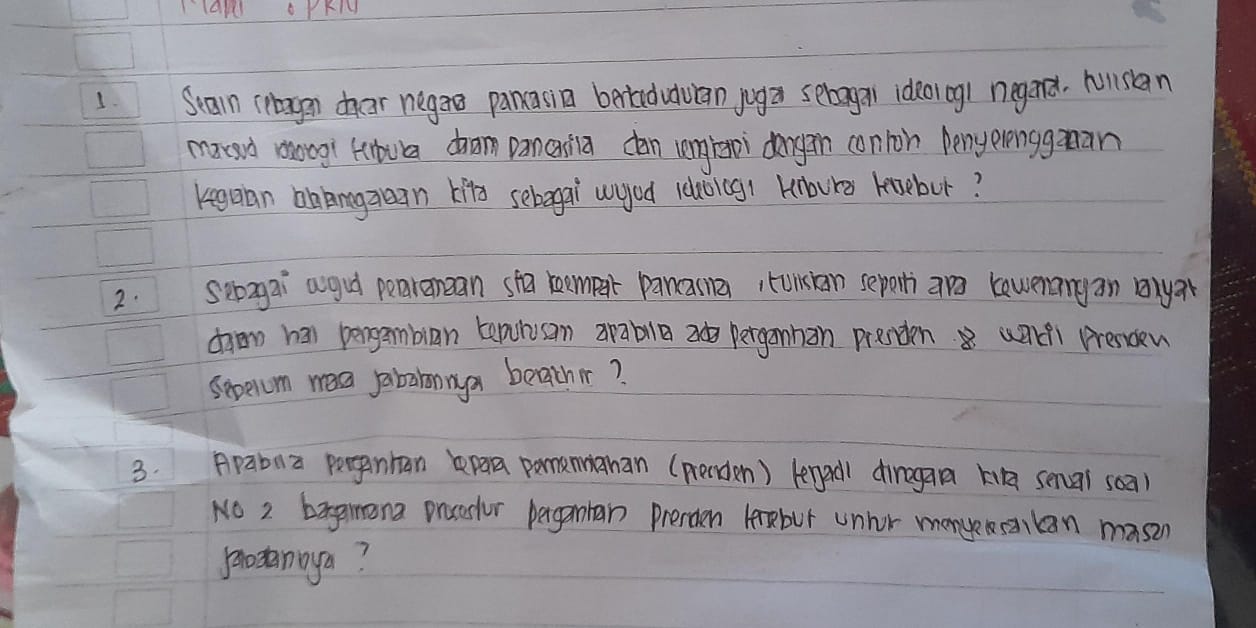 Mapel : PKN
1. Selain sebagai dasar negara pancasila berkedudukan juga sebagai ideologi negara. tuliskan
maksud ideologi terbuka dalam pancasila dan lengkapi dengan contoh penyelenggaraan
kegiatan kita sebagai wujud ideologi terbuka tersebut ?
2. Sebagai wujud sila keempat pancasila, tuliskan seperti apa kewenangan rakyat
dalam hal pengambilan keputusan apabila ada pergantian presiden & wakil presiden
sebelum masa jabatannya berakhir ?
3. Apabila pergantian kepala pemerintahan (presiden) terjadi dinegara kita sesuai soal
NO 2 bagaimana prosedur pergantian presiden tersebut untuk menyelesaikan masa
jabatannya ?